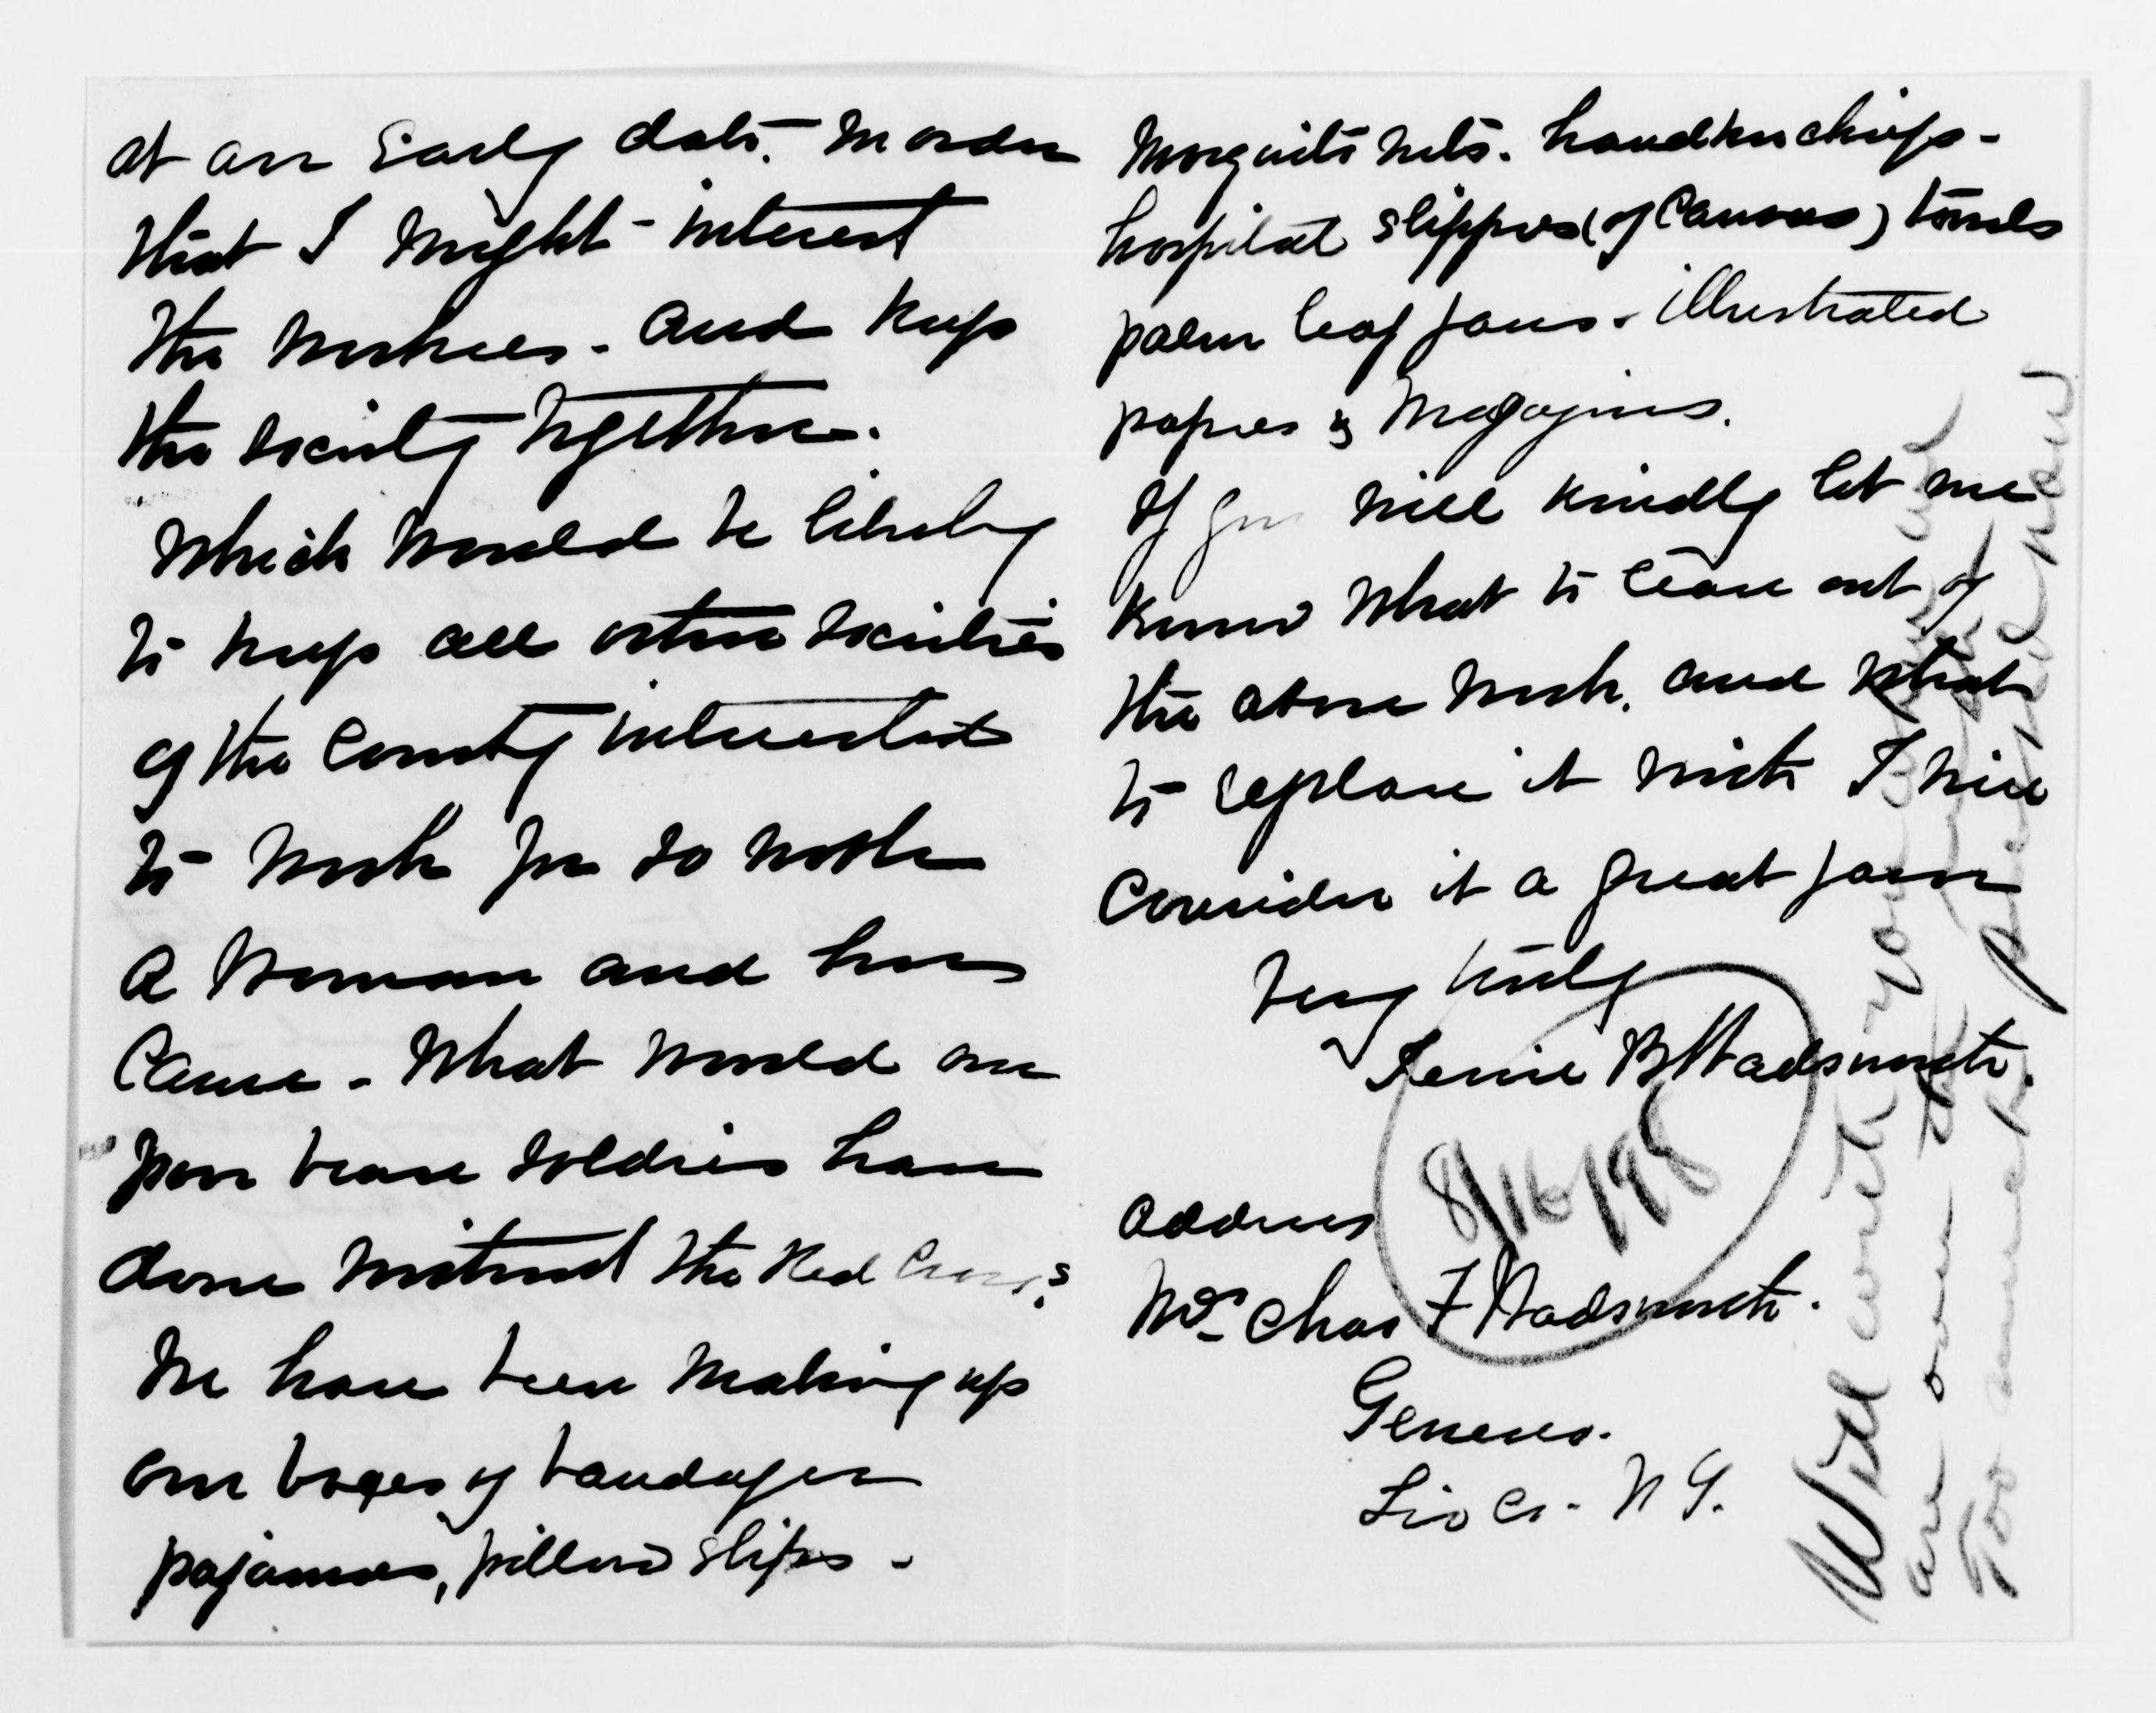 at an Early date. In order
that I might interest
the workers. and keep
the society together.
which would be likely
to keep all other societies
of the County interested
to work for so noble
a woman and her
Cause. What would our
poor brave soldiers have
done without the Red Cross?
We have been making up
our boxes of bandages
pajamas, pillow slips -
Mosquito nets. handkerchiefs -
hospital slippers (of Canvas) towels
palm leaf fans. illustrated
papers & Magazines.
If you will kindly let me
know what to leave out of
the above work. and what
to replace it with I will
Consider it a great favor
Very truly
B Wadsworth.
8/16/98
Address
Mrs Chas F Wadsworth.
Geneseo.
Liv Co. N Y.
Will write you
are
Too much